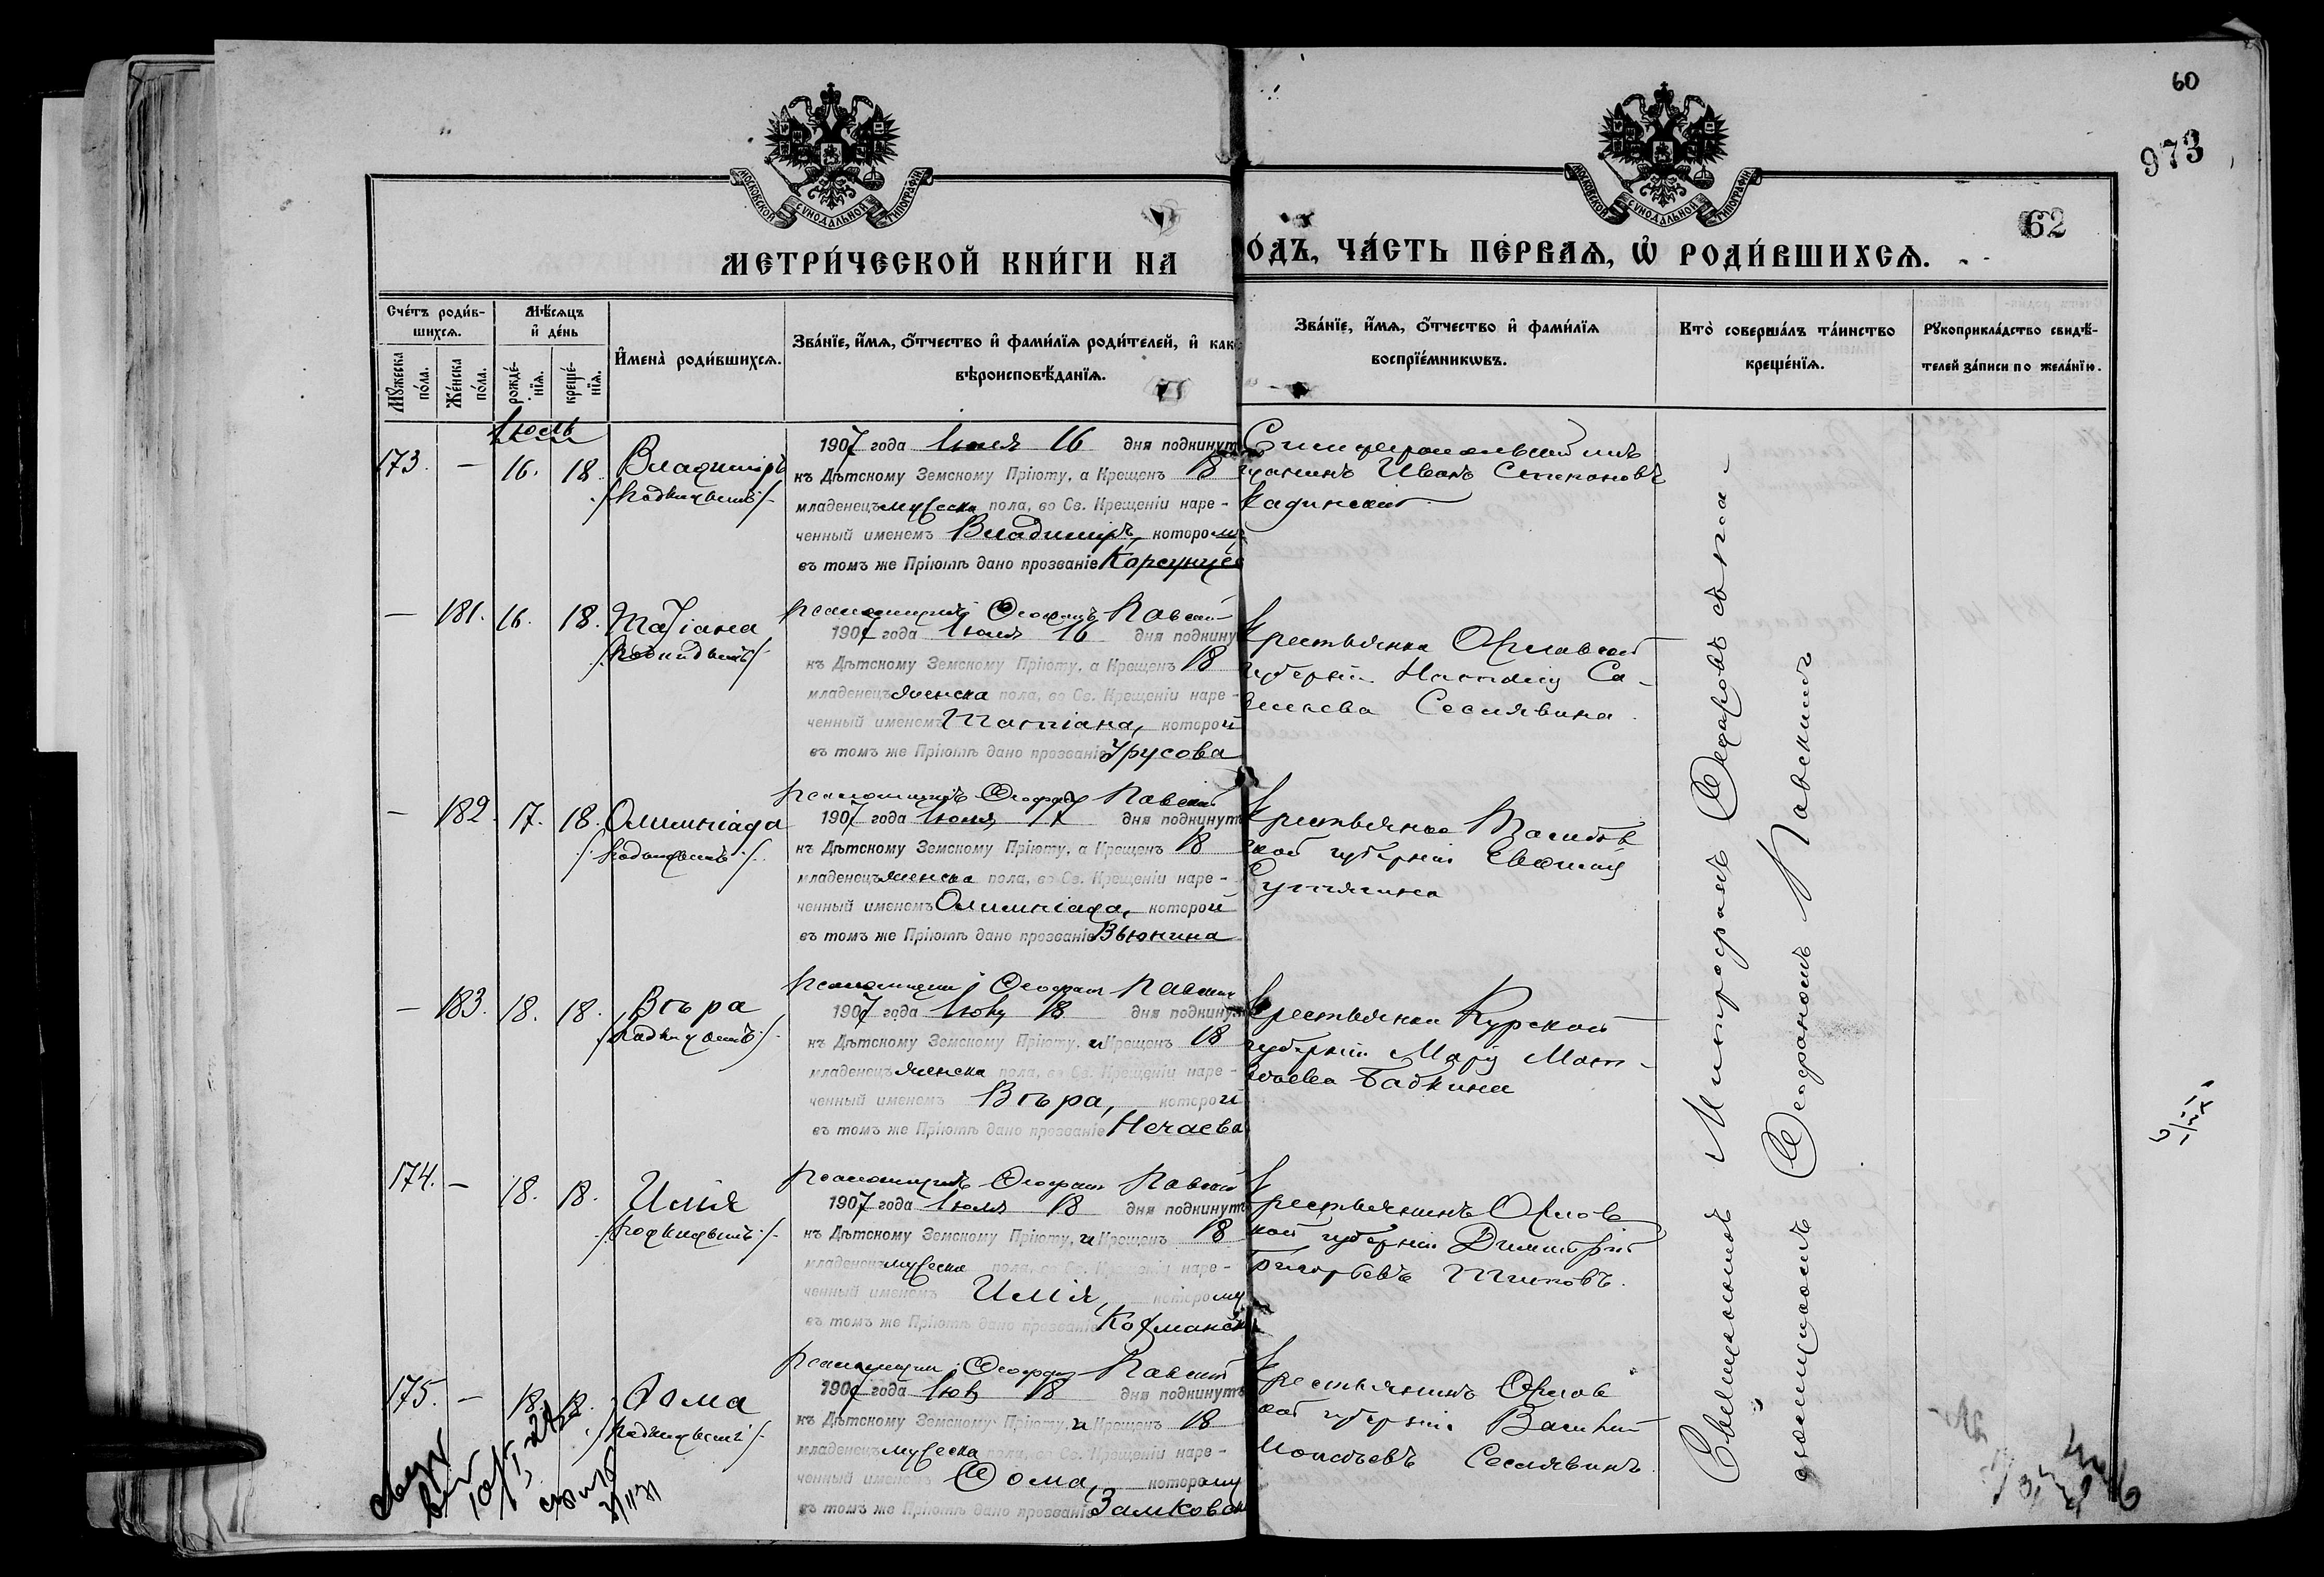 60
973
62
МОСКОВСКОЙ СѴНОДАЛЬНОЙ ТИПОГРАФІИ
МОСКОВСКОЙ СѴНОДАЛЬНОЙ ТИПОГРАФІИ
МЕТРИ́ЧЕСКОЙ КНИ́ГИ НА
О́ДЪ, ЧА́СТЬ ПЕ́РВАѦ, Ѡ҆ РОДИ́ВШИХСѦ.
Сче́тъ роди́в-
шихсѧ.
Мꙋ́жеска
по́ла.
Же́нска
по́ла.
Мѣ́сѧцъ
и҆ де́нь
рожде́-
нїѧ.
креще́-
нїѧ.
И҆мена̀ роди́вшихсѧ.
Зва́нїе, и҆́мѧ, ѻ҆́тчество и҆ фами́лїѧ роди́телей, и҆ как
вѣроисповѣ́данїѧ.
Зва́нїе, и҆́мѧ, ѻ҆́тчество и҆ фами́лїѧ
воспрїе́мникѡвъ.
Кто̀ соверша́лъ та́инство
креще́нїѧ.
Рꙋкоприкла́дство свидѣ́-
телей за́писи по жела́нїю.
Іюль
173. — 16. 18. Владиміръ
/Подкидышъ/
1907 года Іюля 16 дня подкинут
къ Дѣтскому Земскому Пріюту, а Крещенъ 18
младенецъ мужеска пола, во Св. Крещеніи наре-
ченный именемъ Владиміръ, которому
въ томъ же Пріютѣ дано прозваніе Корсунцев
Симферопольскій мѣ
щанинъ Иванъ Степановъ
— 181. 16. 18. Татіана
/Подкидышъ/
Псаломщикъ Ѳеофанъ Павскій
1907 года Іюля 16 дня подкину
къ Дѣтскому Земскому Пріюту, а Крещенъ 18
младенецъ женска пола, во Св. Крещеніи наре-
ченный именемъ Татіана, которой
въ томъ же Пріютѣ дано прозваніе Урусова
Крестьянка Орловской
губерніи Наталія Са-
вельева Сеславина
— 182. 17. 18. Олимпіада
/Подкидышъ/
Псаломщикъ Ѳеофанъ Павскій
1907 года Іюля 17 дня подкинут
къ Дѣтскому Земскому Пріюту, а Крещенъ 18
младенецъ женска пола, во Св. Крещеніи наре-
ченный именемъ Олимпіада, которой
въ томъ же Пріютѣ дано прозваніе Вьюнина
Крестьянка
губерніи
— 183. 18. 18. Вѣра
/Подкидышъ/
Псаломщикъ Ѳеофанъ Павскій
1907 года Іюля 18 дня подкину
къ Дѣтскому Земскому Пріюту, и Крещенъ 18
младенецъ женска пола, во Св. Крещеніи наре-
ченный именемъ Вѣра, которой
въ томъ же Пріютѣ дано прозваніе Нечаева
Крестьянка Курской
губерніи Марія Мат-
вѣева Бабкина
174. — 18. 18. Илія
/Подкидышъ/
Псаломщикъ Ѳеофанъ Павскій
1907 года Іюля 18 дня подкинутъ
къ Дѣтскому Земскому Пріюту, и Крещенъ 18
младенецъ мужеска пола, во Св. Крещеніи наре-
ченный именемъ Илія, которому
въ томъ же Пріютѣ дано прозваніе
Крестьянинъ Орлов
кой губерніи Димитрій
Григорьевъ Титовъ.
175. — 18. 18. Ѳома
/Подкидышъ/
Псаломщикъ Ѳеофанъ Павскій
1907 года Іюля 18 дня подкинутъ
къ Дѣтскому Земскому Пріюту, и Крещенъ 18
младенецъ мужеска пола, во Св. Крещеніи наре-
ченный именемъ Ѳома, которому
въ томъ же Пріютѣ дано прозваніе Замковой
Крестьянинъ Орлов
кой губерніи Василій
Сеславинъ
Священникъ Митрофанъ Ѳедоровъ съ пса-
ломщикомъ Ѳеофаномъ Павскимъ